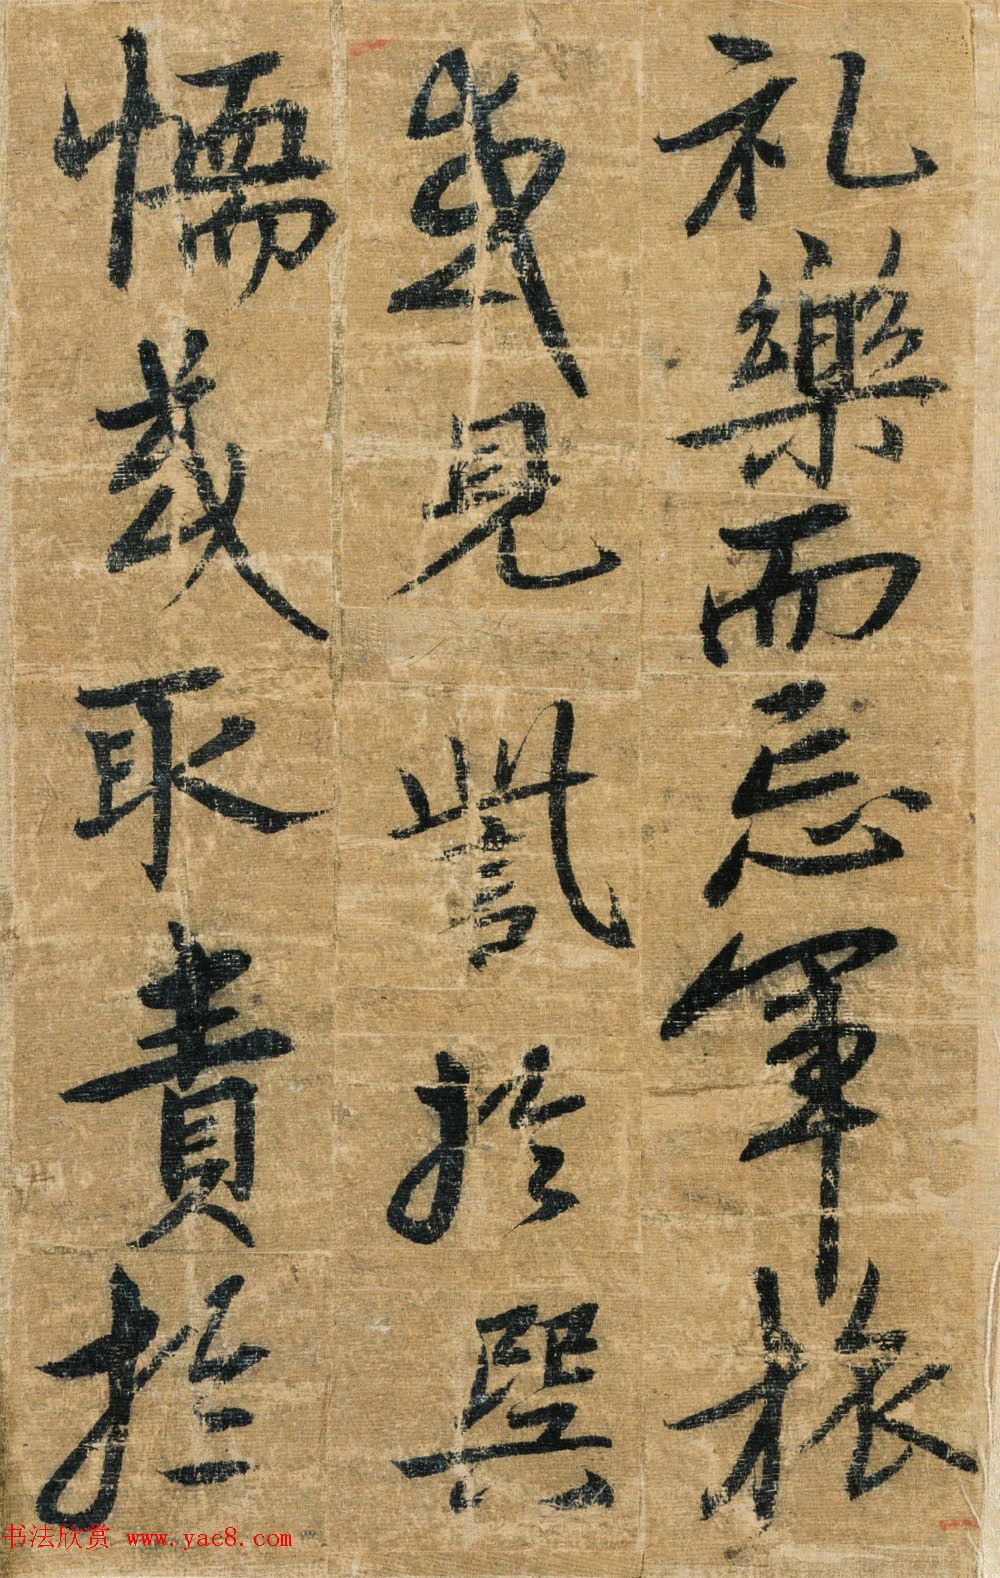 礼樂而忘軍旅
或見訾於選
懦或取責於
书法欣赏 www.yac8.com